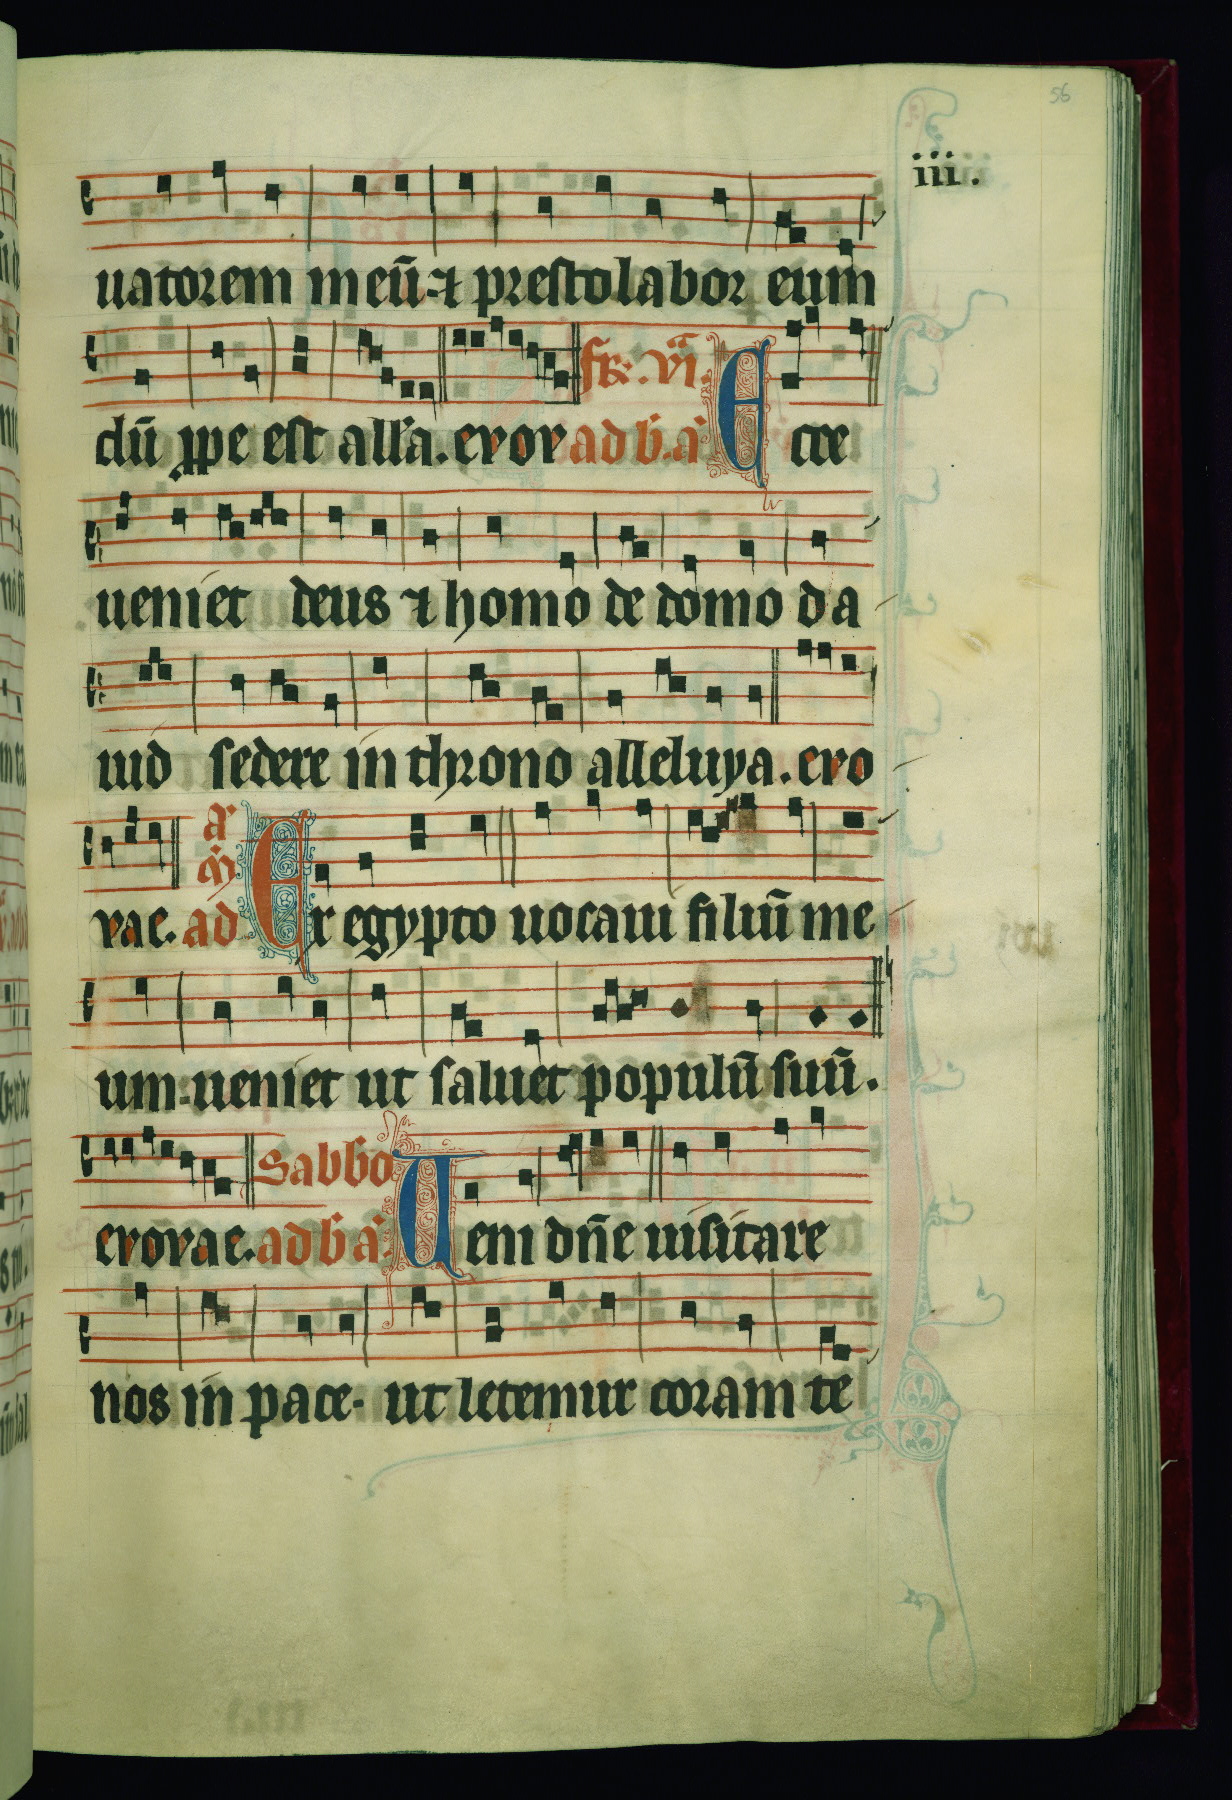 56
iiii.
uatorem meū ⁊ prestolabor eum
dū ꝓpe est all'a. evov fr̄. vi. ad b. a. Ecce
ueniet deus ⁊ homo de domo da
uid sedere in throno alleluya. evo
vae. ad m̄ a. Ex egypto uocaui filiū me
um ueniet ut saluet populū suū.
evovae. Sabb'o ad b a. Ueni dn̄e uisitare
nos in pace. ut letemur coram te